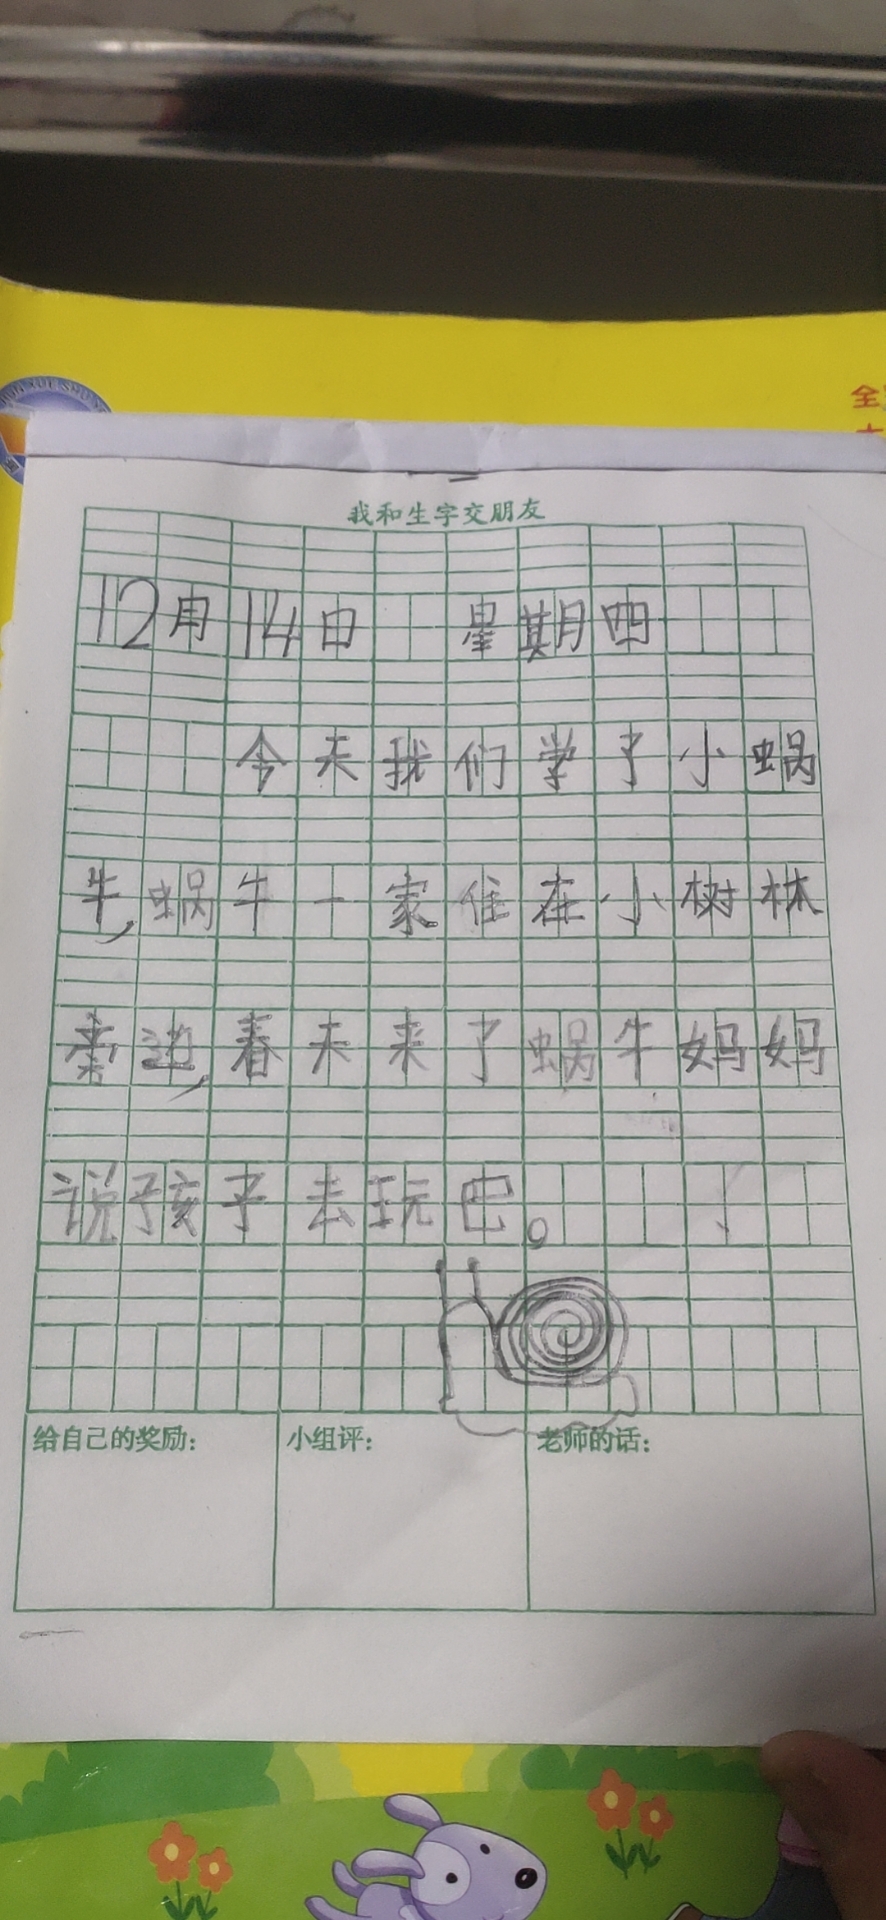 全
我和生字交朋友
12月14日 星期四
今天我们学了小蜗
牛,蜗牛一家住在小树林
旁边,春天来了蜗牛妈妈
说孩子去玩巴。
给自己的奖励：
小组评：
老师的话：